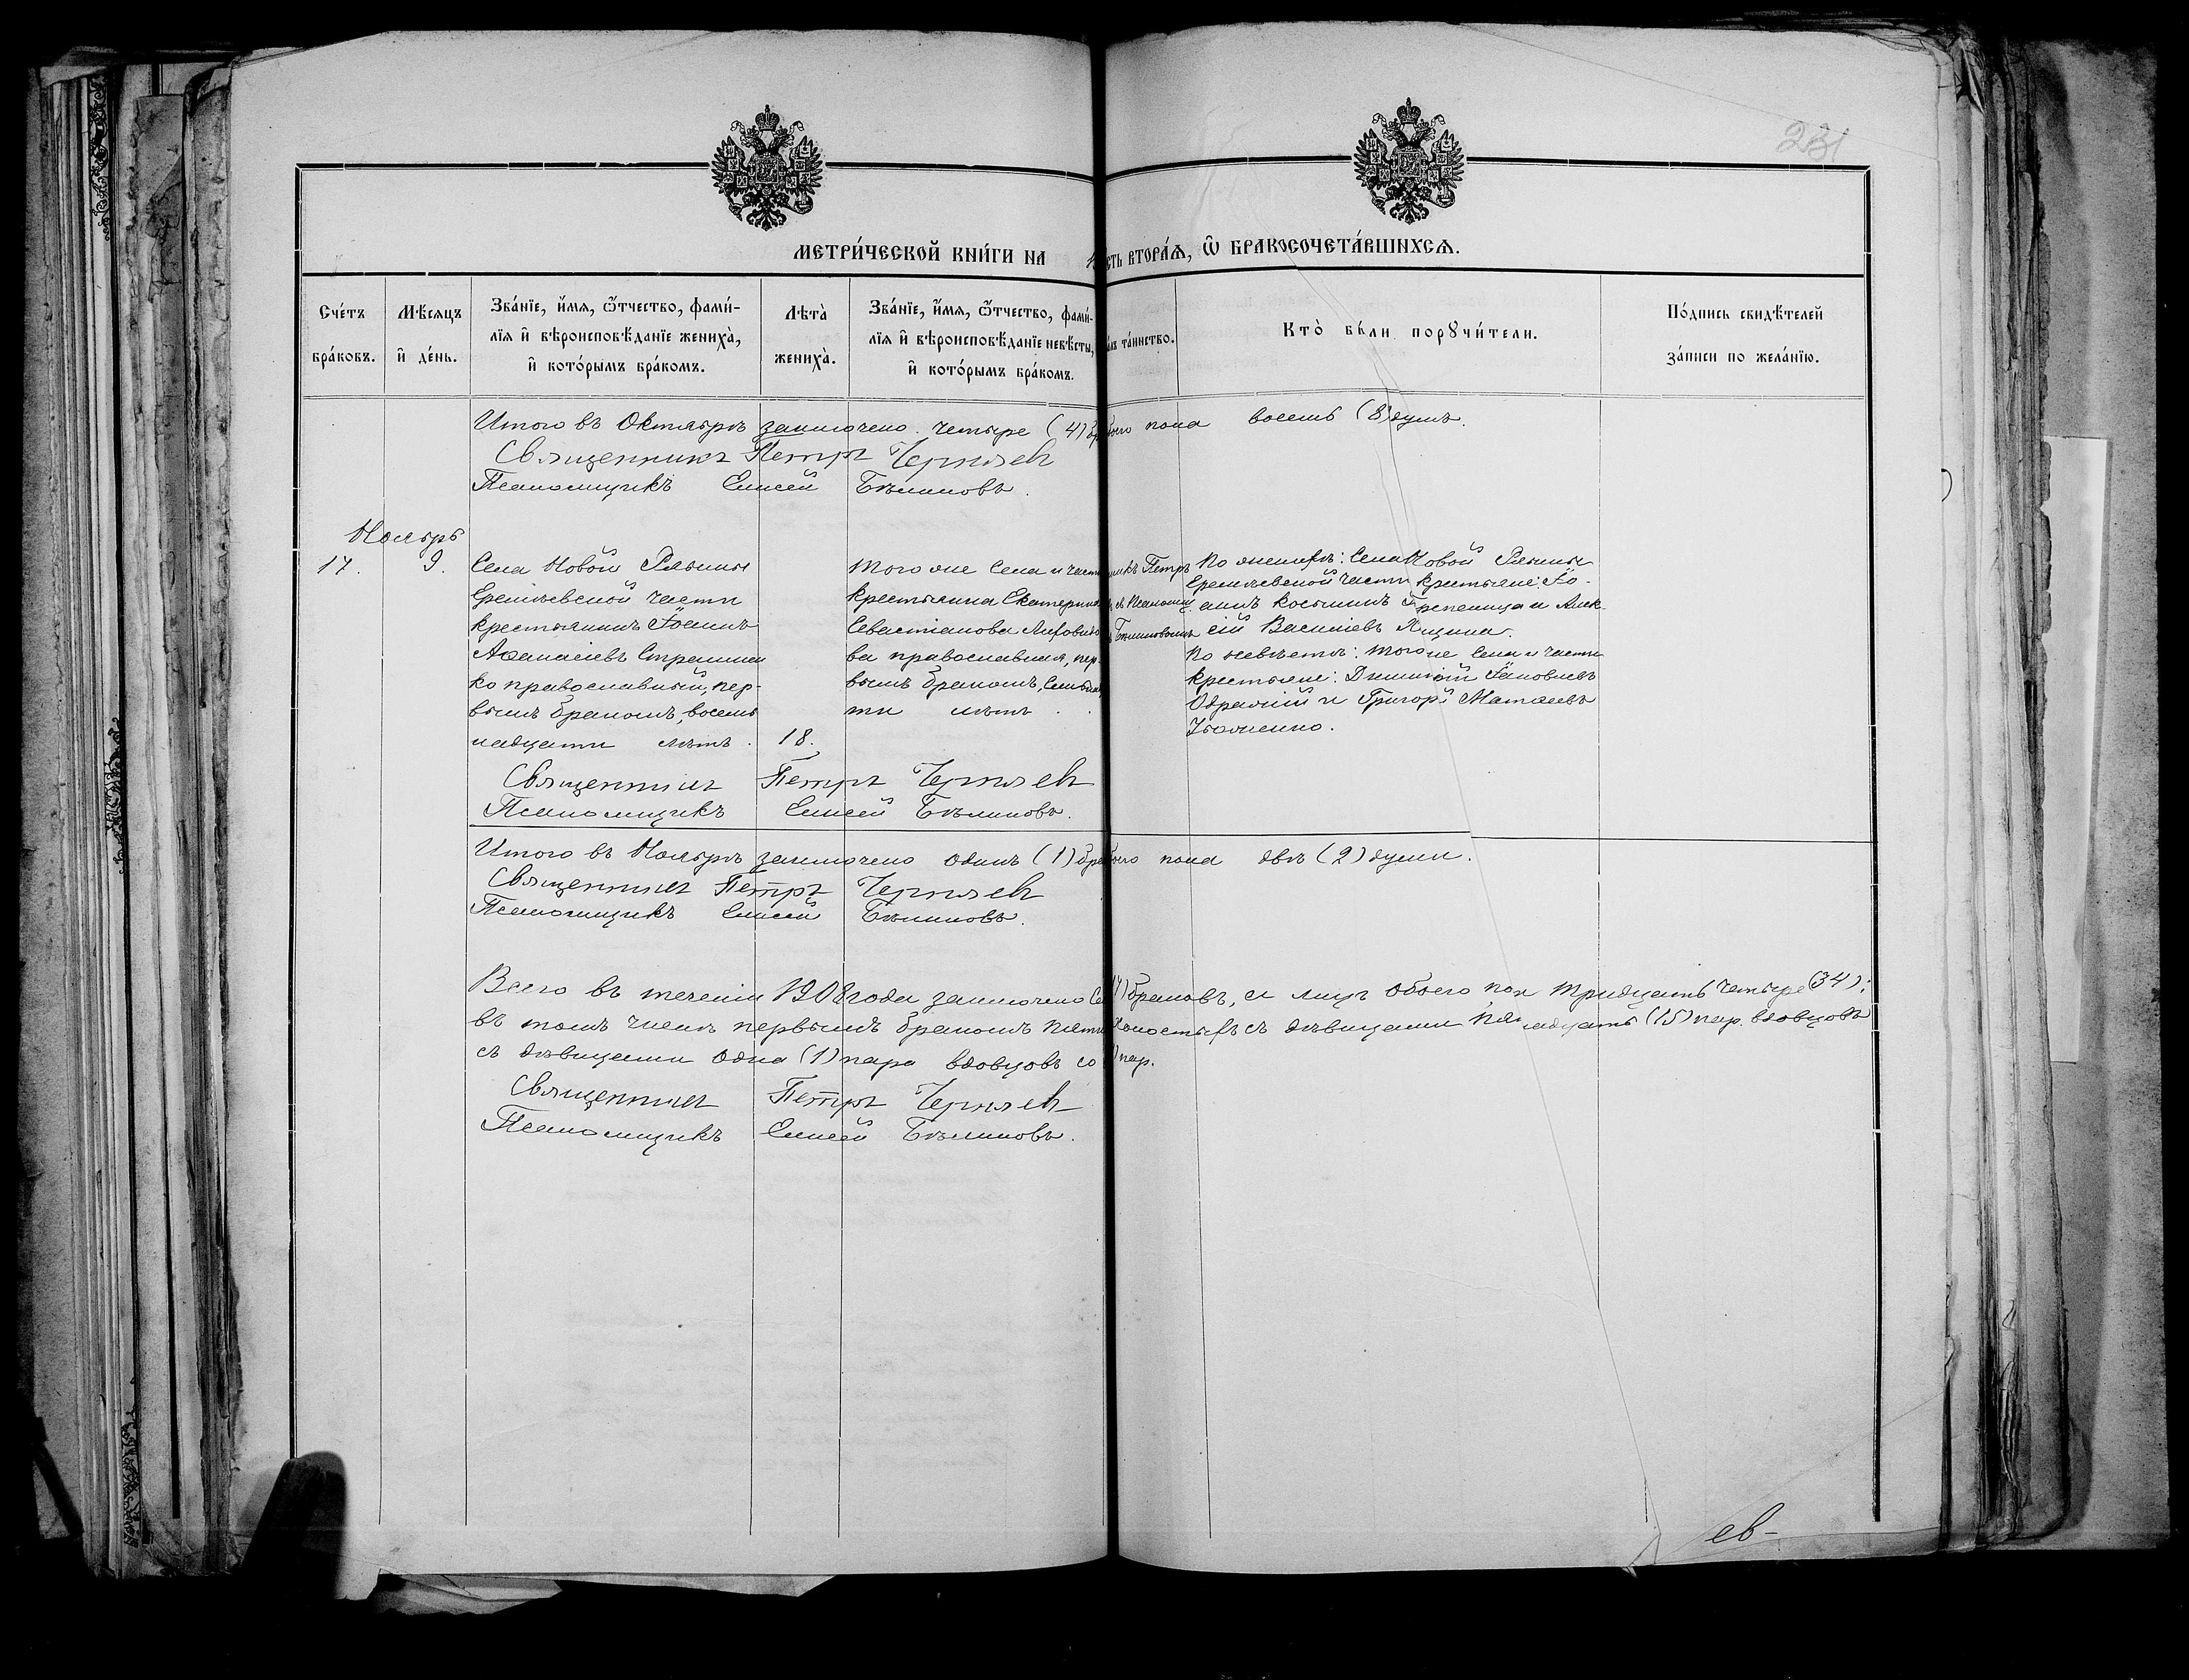 231
МЕТРИ́ЧЕСКОЙ КНИ́ГИ НА
СТЬ ВТОРА́Я, Ѿ БРАКОСОЧЕТА́ВШИХСѦ.
Сче́тъ
бра́ковъ.
Мѣ́сяцъ
и҆ де́нь.
Зва́нїе, и҆́мя, ѻ҆́тчество, фами́-
лїя и҆ вѣроисповѣ́данїе жениха̀,
и҆ кото́рымъ бра́комъ.
Лѣта̀
жениха̀.
Зва́нїе, и҆́мя, ѻ҆́тчество, фами́-
лїя и҆ вѣроисповѣ́данїе невѣ́сты,
и҆ кото́рымъ бра́комъ.
та́инство.
Кто̀ бы́ли порꙋчи́тели.
По́дпись свидѣ́телей
за́писи по жела́нїю.
Итого въ Октябрѣ заключено четыре (4) бр
пола восемь (8) душъ.
Священникъ Петръ Черняев
Псаломщикъ Елисей Бѣликовъ.
Ноябрь
17. 9.
Села Новой Рябины
Еремѣевской части
крестьянинъ Іоаннъ
Аѳанасіевъ Страшнен
ко православный, пер-
вымъ бракомъ, восем
надцати лѣтъ.
18.
Того же Села и части
крестьянка Екатерина
Севастіанова
ва православная, пер-
вымъ бракомъ,
ти лѣтъ
Петръ
Псаломщ
Бѣликовымъ
По женихѣ: Села Новой Рябины
Еремѣевской части крестьяне: Іо-
аннъ Косьминъ и Алек-
сій Васильевъ Ящина.
По невѣстѣ: того же Села и части
крестьяне: Димитрій Іаковлевъ
и Григорій Матѳеевъ
Священникъ Петръ Черняев
Псаломщикъ Елисей Бѣликовъ.
Итого въ Ноябрѣ заключено одинъ (1) бра
пола двѣ (2) души.
Священникъ Петръ Черняев
Псаломщикъ Елисей Бѣликовъ.
Всего въ теченіи 1908 года заключено Се
браковъ, а лицъ обоего пола тридцать четыре (34);
въ томъ числѣ первымъ бракомъ
съ дѣвицами пятнадцать (15) пар. вдовцовъ
съ дѣвицами одна (1) пара вдовцовъ со
пар.
Священникъ Петръ Черняев
Псаломщикъ Елисей Бѣликовъ.
ев-